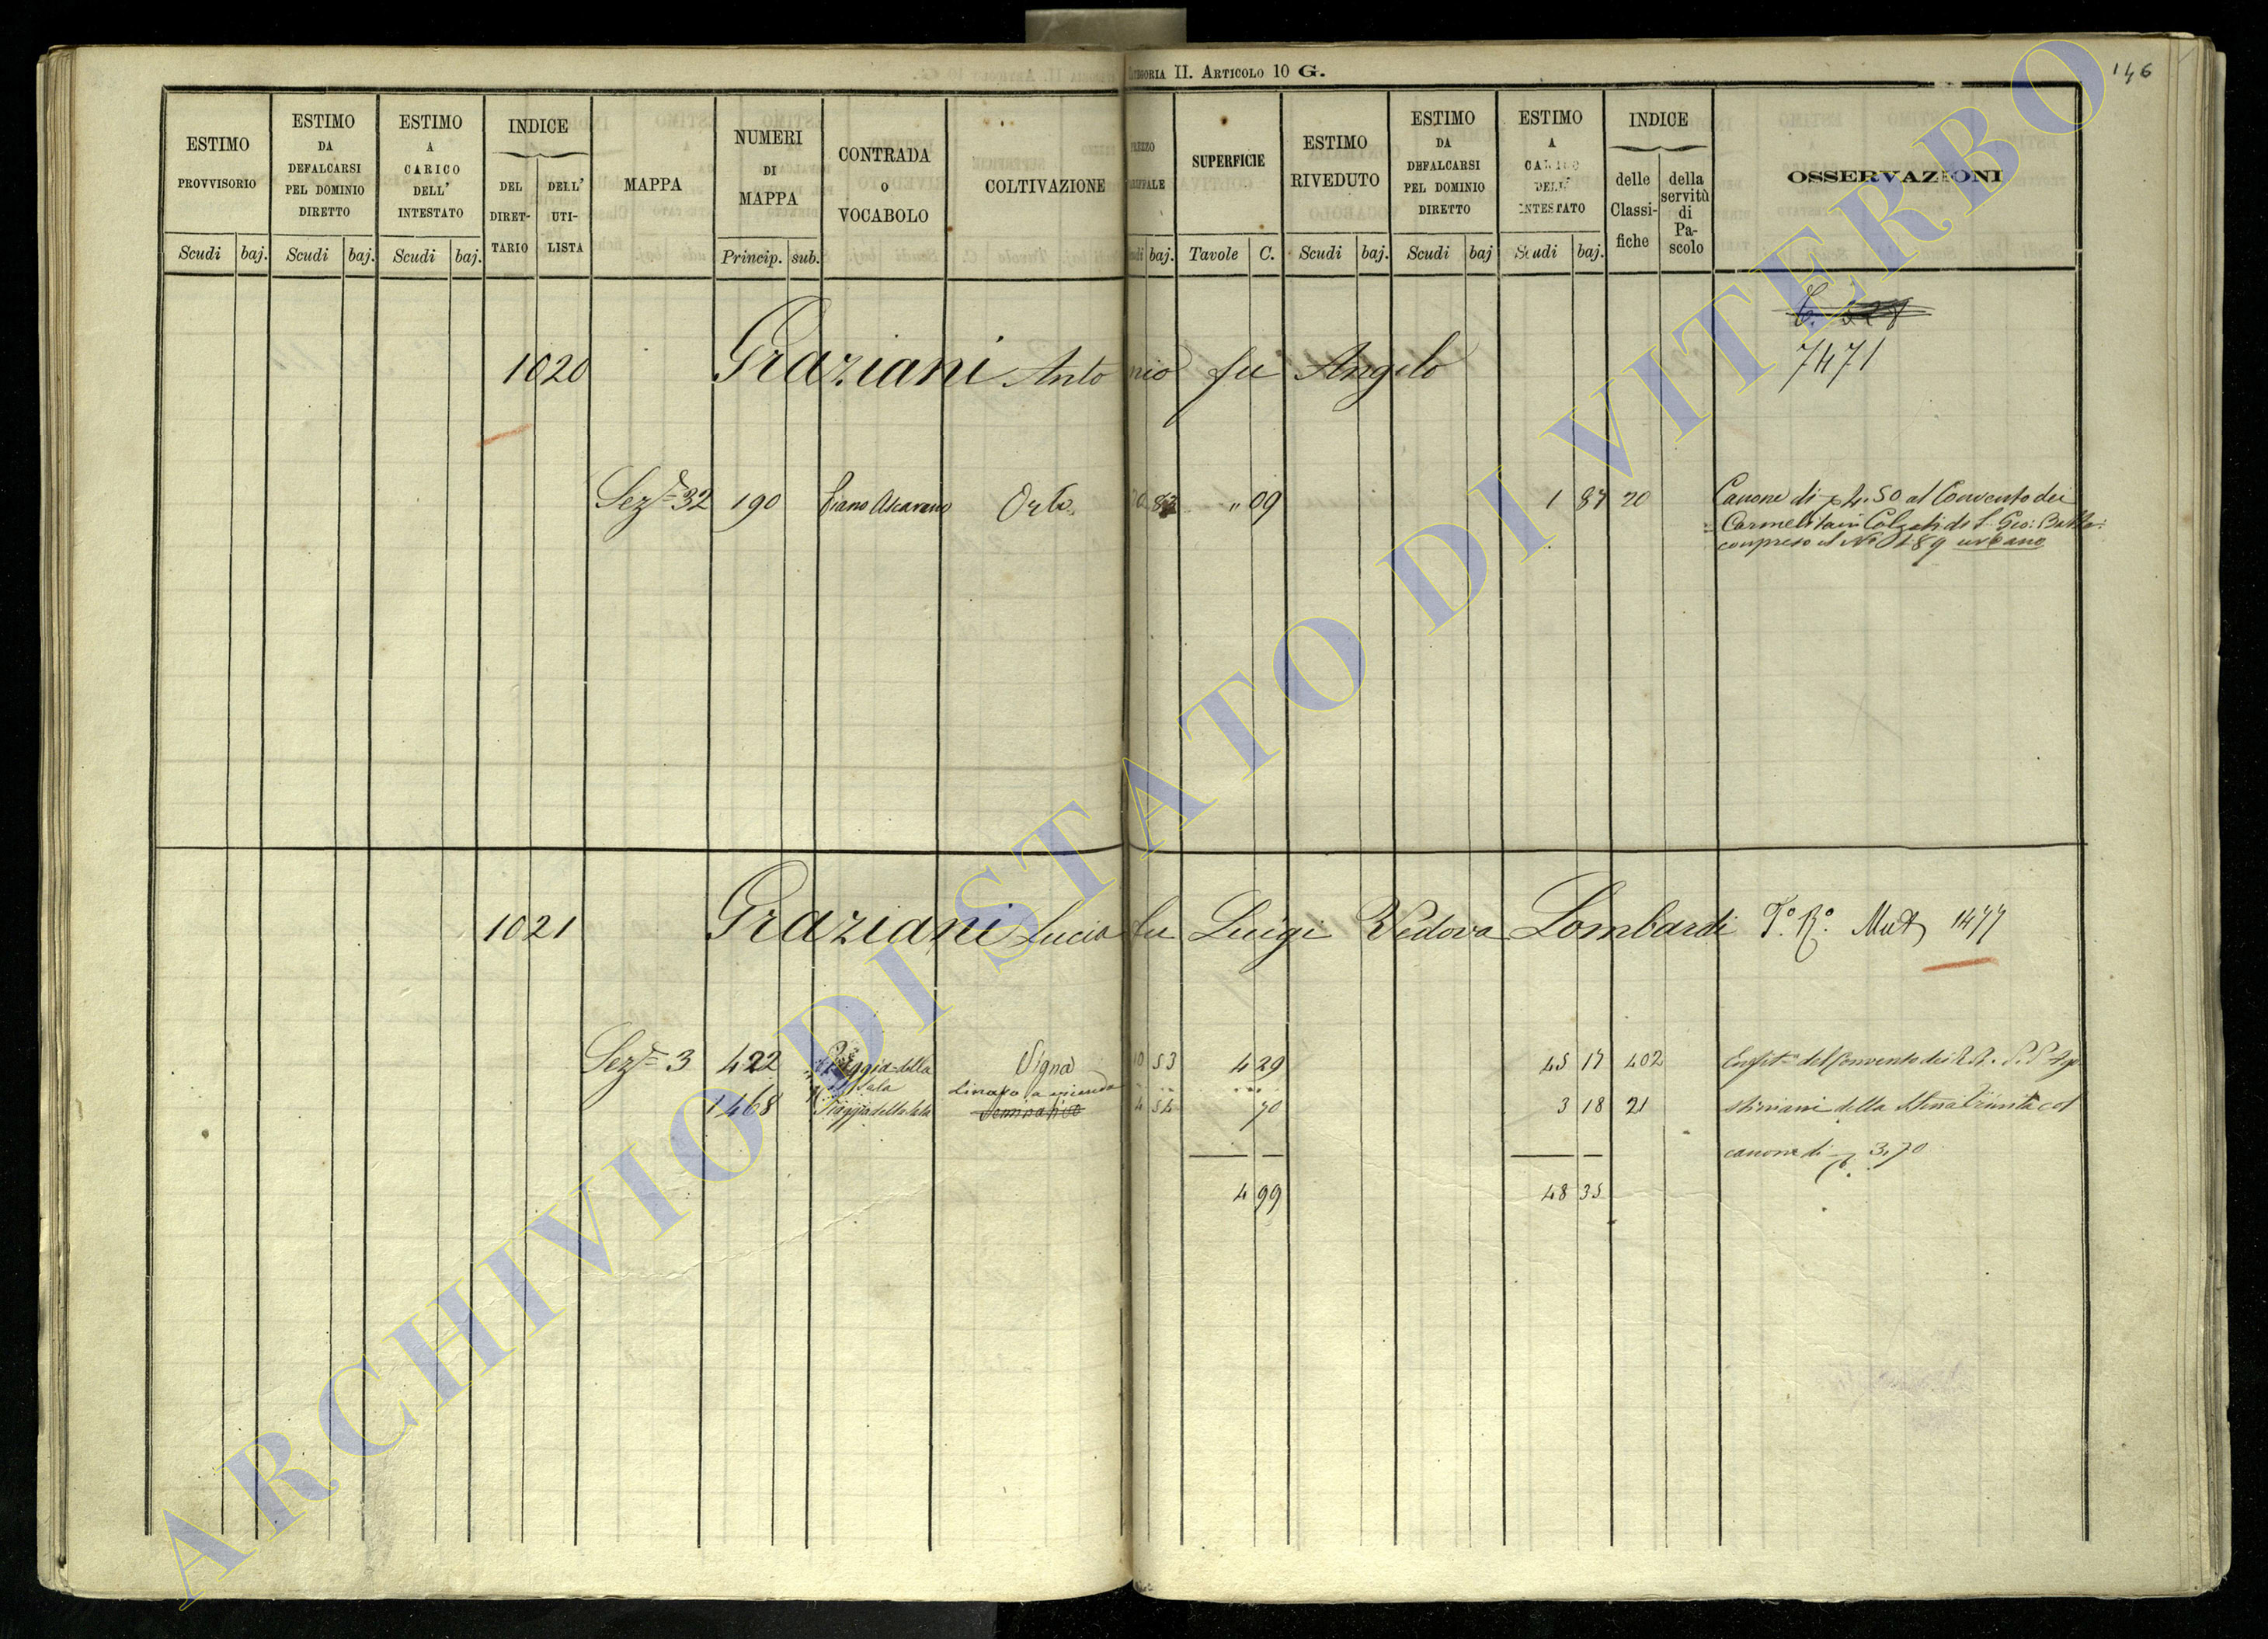 Categoria II. Articolo 10 G.
146
ESTIMO PROVVISORIO
Scudi baj.
ESTIMO DA DEFALCARSI PEL DOMINIO DIRETTO
Scudi baj.
ESTIMO A CARICO DELL' INTESTATO
Scudi baj.
INDICE
DEL DIRET-TARIO
DELL' UTI-LISTA
MAPPA
NUMERI DI MAPPA
Princip. sub.
CONTRADA O VOCABOLO
COLTIVAZIONE
baj.
SUPERFICIE
Tavole C.
ESTIMO RIVEDUTO
Scudi baj.
ESTIMO DA DEFALCARSI PEL DOMINIO DIRETTO
Scudi baj
ESTIMO A CARICO DELL' INTESTATO
Scudi baj.
INDICE
delle Classi-fiche
della servitù di Pa-scolo
OSSERVAZIONI
1020 Graziani Antonio fu Angelo
7471
Sez.e 32 190 Piano Ascarano Orto 83 " 09 1 87 20
Canone di 4.50 al Convento dei
Carmelitani Calzati di S. Gio: Batta:
compreso il No 189 urbano
1021 Graziani Lucia fu Luigi Vedova Lombardi To. Ro. Mut 1477
Sez.e 3 422 Piaggia della Sala Vigna 10 53 4 29 45 17 402
1468 Piaggia della Sala Seminativo 4 54 70 3 18 21
4 99 48 35
Enfit.a del Convento dei R.R. P.P. Ago
stiniani della SSma Trinità col
canone di 3.70
ARCHIVIO DI STATO DI VITERBO